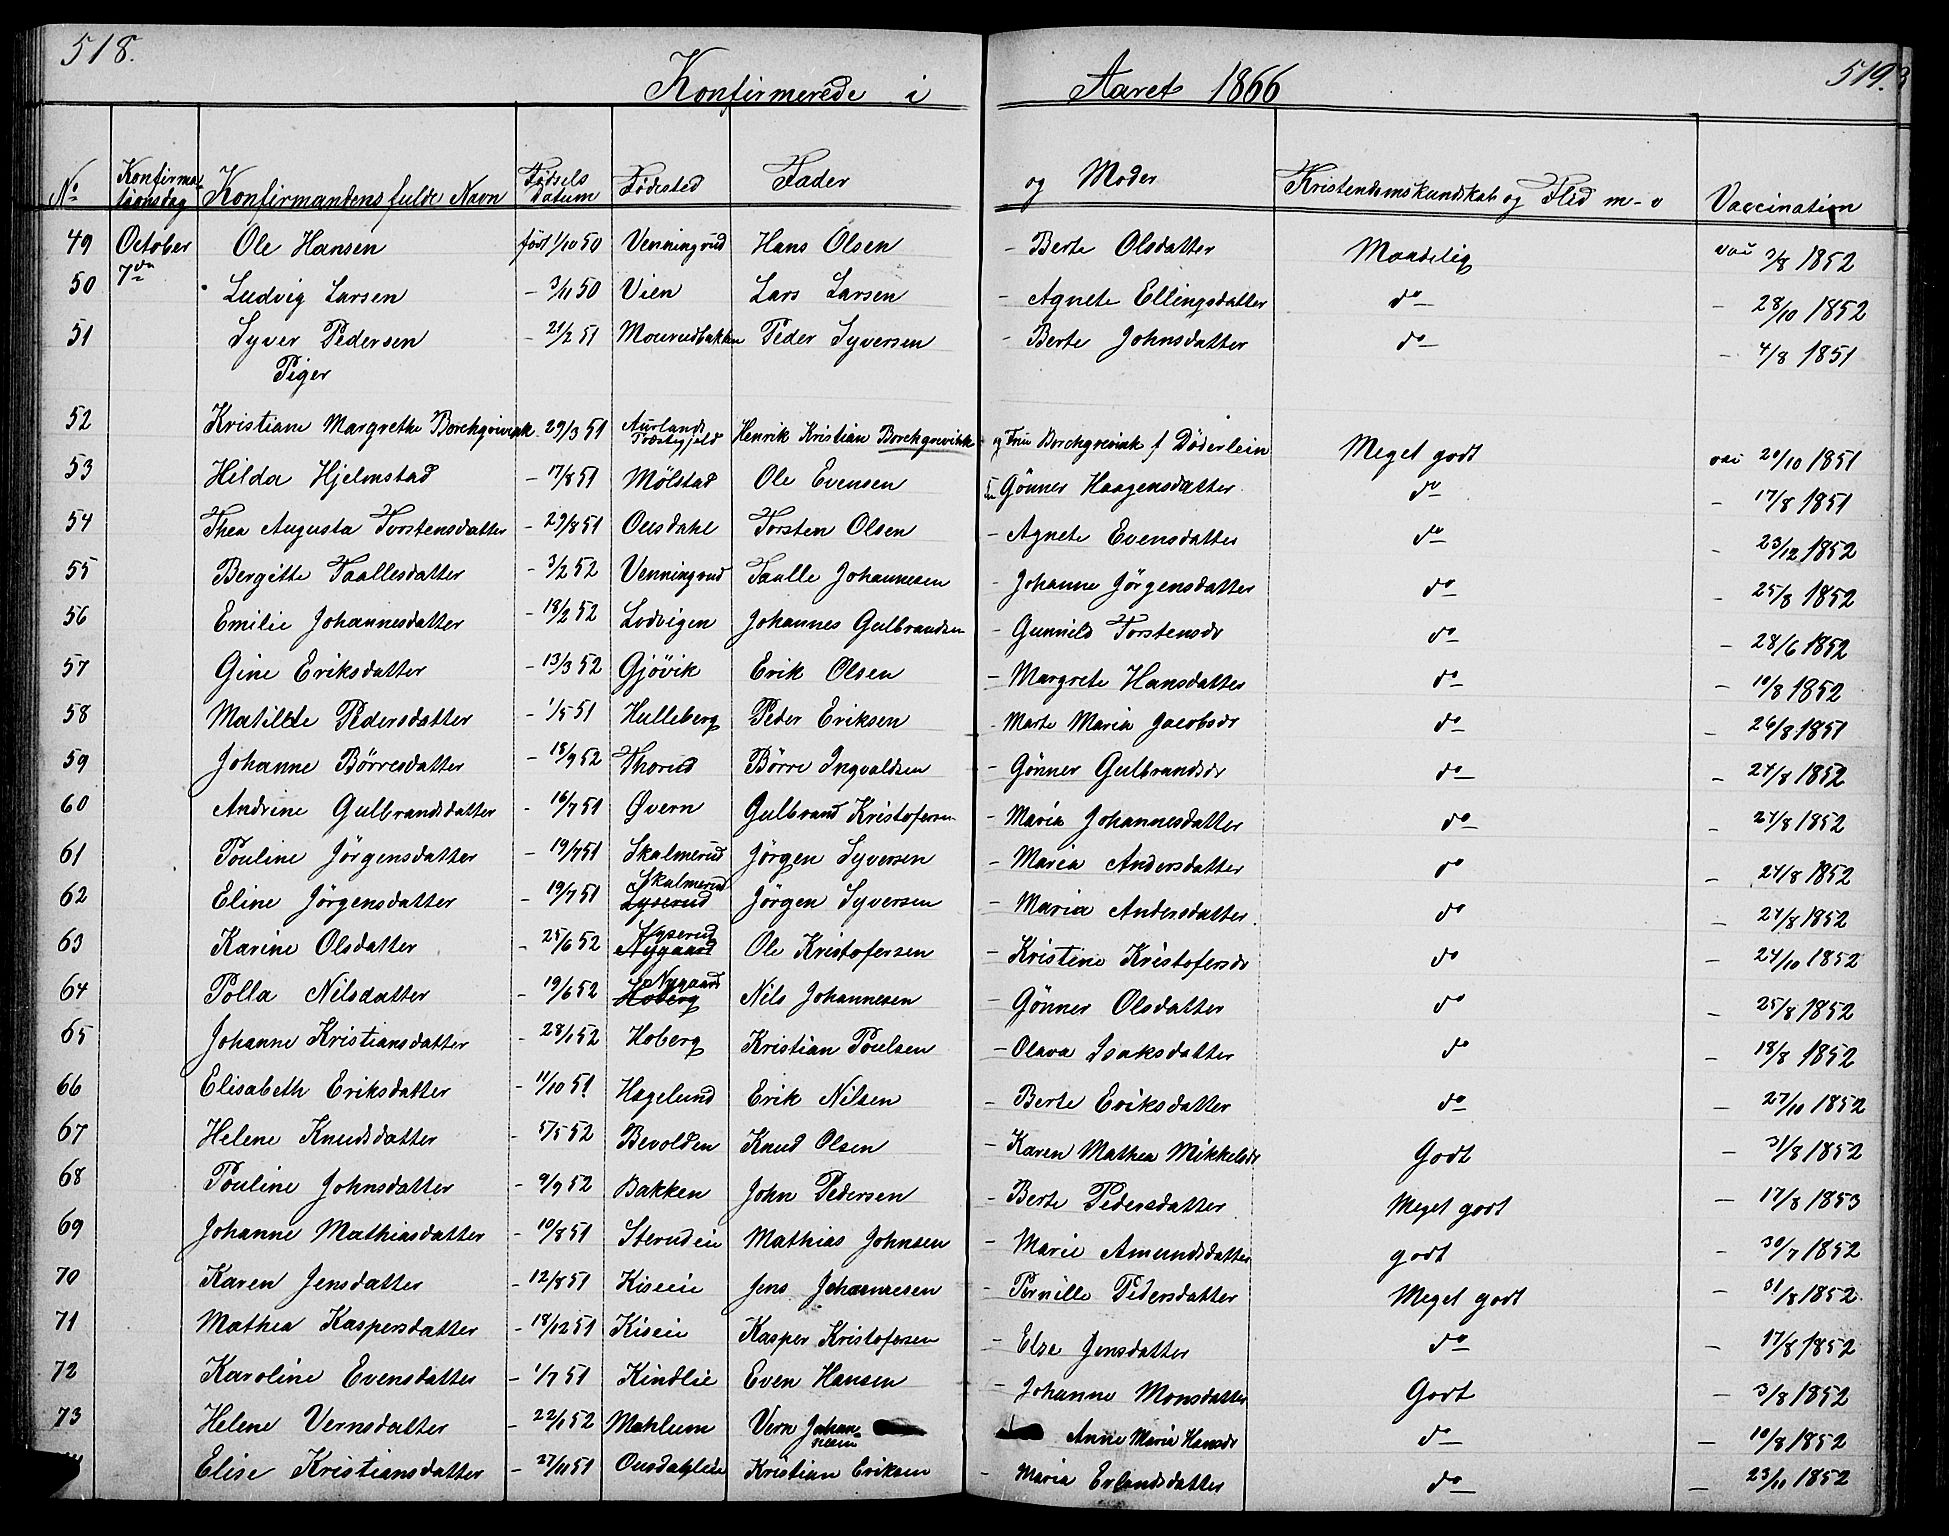 518.
519.
Konfirmerede i Aaret 1866
No Konfirmationsdag Konfirmandens fulde Navn Fødselsdatum Fødested Fader og Moder Kristendomskundskab og Flid m-v Vaccination
49 October 7de Ole Hansen født 1/10 50 Venningrud Hans Olsen - Berte Olsdatter Maadelig vac 3/8 1852
50 Ludvig Larsen - 3/11 50 Vien Lars Larsen - Agnete Ellingsdatter do - 28/10 1852
51 Syver Pedersen - 21/2 51 Mourudbakken Peder Syversen - Berte Johnsdatter do - 4/8 1851
Piger
52 Kristiane Margrethe Borchgrevink 29/3 51 Aurlands Præstegjeld Henrik Kristian Borchgrevink og Fru Borchgrevink f Döderlein Meget godt vac 20/10 1851
53 Hilda Hjelmstad - 17/8 51 Mölstad Ole Evensen Gönner Haagensdatter do - 17/8 1851
54 Thea Augusta Torstensdatter - 29/8 51 Ousdahl Torsten Olsen - Agnete Evensdatter do - 23/12 1852
55 Bergitte Taallesdatter - 3/2 52 Venningrud Taalle Johannesen - Johanne Jörgensdatter do - 25/8 1852
56 Emilie Johannesdatter - 18/2 52 Lodvigen Johannes Gulbrandsen - Gunnild Torstensdr do - 28/6 1852
57 Gine Eriksdatter - 13/3 52 Gjövik Erik Olsen - Margrete Hansdatter do - 10/8 1852
58 Matilde Pedersdatter - 1/5 51 Hulleberg Peder Eriksen - Marte Maria Jacobsdr do - 26/8 1851
59 Johanne Börresdatter - 18/9 52 Thorud Börre Ingvaldsen - Gönner Gulbrandsdr do - 24/8 1852
60 Andrine Gulbrandsdatter - 16/7 51 Øvern Gulbrand Kristofersen - Maria Johannesdatter do - 24/8 1852
61 Pouline Jörgensdatter - 19/7 51 Skalmerud Jörgen Syversen - Maria Andersdatter do - 24/8 1852
62 Eline Jörgensdatter - 19/7 51 Skalmerud Lyserud Jörgen Syversen - Maria Andersdatter do - 24/8 1852
63 Karine Olsdatter - 25/6 52 Lyserud Nygaard Ole Kristofersen - Kristine Kristofersdr do - 24/10 1852
64 Polla Nilsdatter - 19/6 52 Nygaard Hoberg Nils Johannesen - Gönner Olsdatter do - 25/8 1852
65 Johanne Kristiansdatter - 28/1 52 Hoberg Kristian Poulsen - Olava Isaksdatter do - 18/8 1852
66 Elisabeth Eriksdatter - 11/10 51 Hagelund Erik Nilsen - Berte Eriksdatter do - 27/10 1852
67 Helene Knudsdatter - 5/5 52 Bevolden Knud Olsen - Karen Mathea Mikkelsdr Godt - 31/8 1852
68 Pouline Johnsdatter - 9/9 52 Bakken John Pedersen - Berte Pedersdatter Meget godt - 17/8 1853
69 Johanne Mathiasdatter - 10/8 51 Sterudeie Mathias Johnsen - Marie Amundsdatter godt - 30/7 1852
70 Karen Jensdatter - 12/8 51 Kiseie Jens Johannesen - Pernille Pedersdatter Meget godt - 31/8 1852
71 Mathea Kaspersdatter - 18/12 51 Kiseie Kasper Kristofersen - Else Jensdatter do - 17/8 1852
72 Karoline Evensdatter - 1/7 51 Kindlie Even Hansen - Johanne Monsdatter Godt - 3/8 1852
73 Helene Vernsdatter - 22/1 52 Mæhlum Vern Johannesen Anne Marie Hansdr do - 10/8 1852
Elise Kristiansdatter - 27/11 51 Ousdahleie Kristian Eriksen - Maria Erlandsdatter do - 23/11 1852